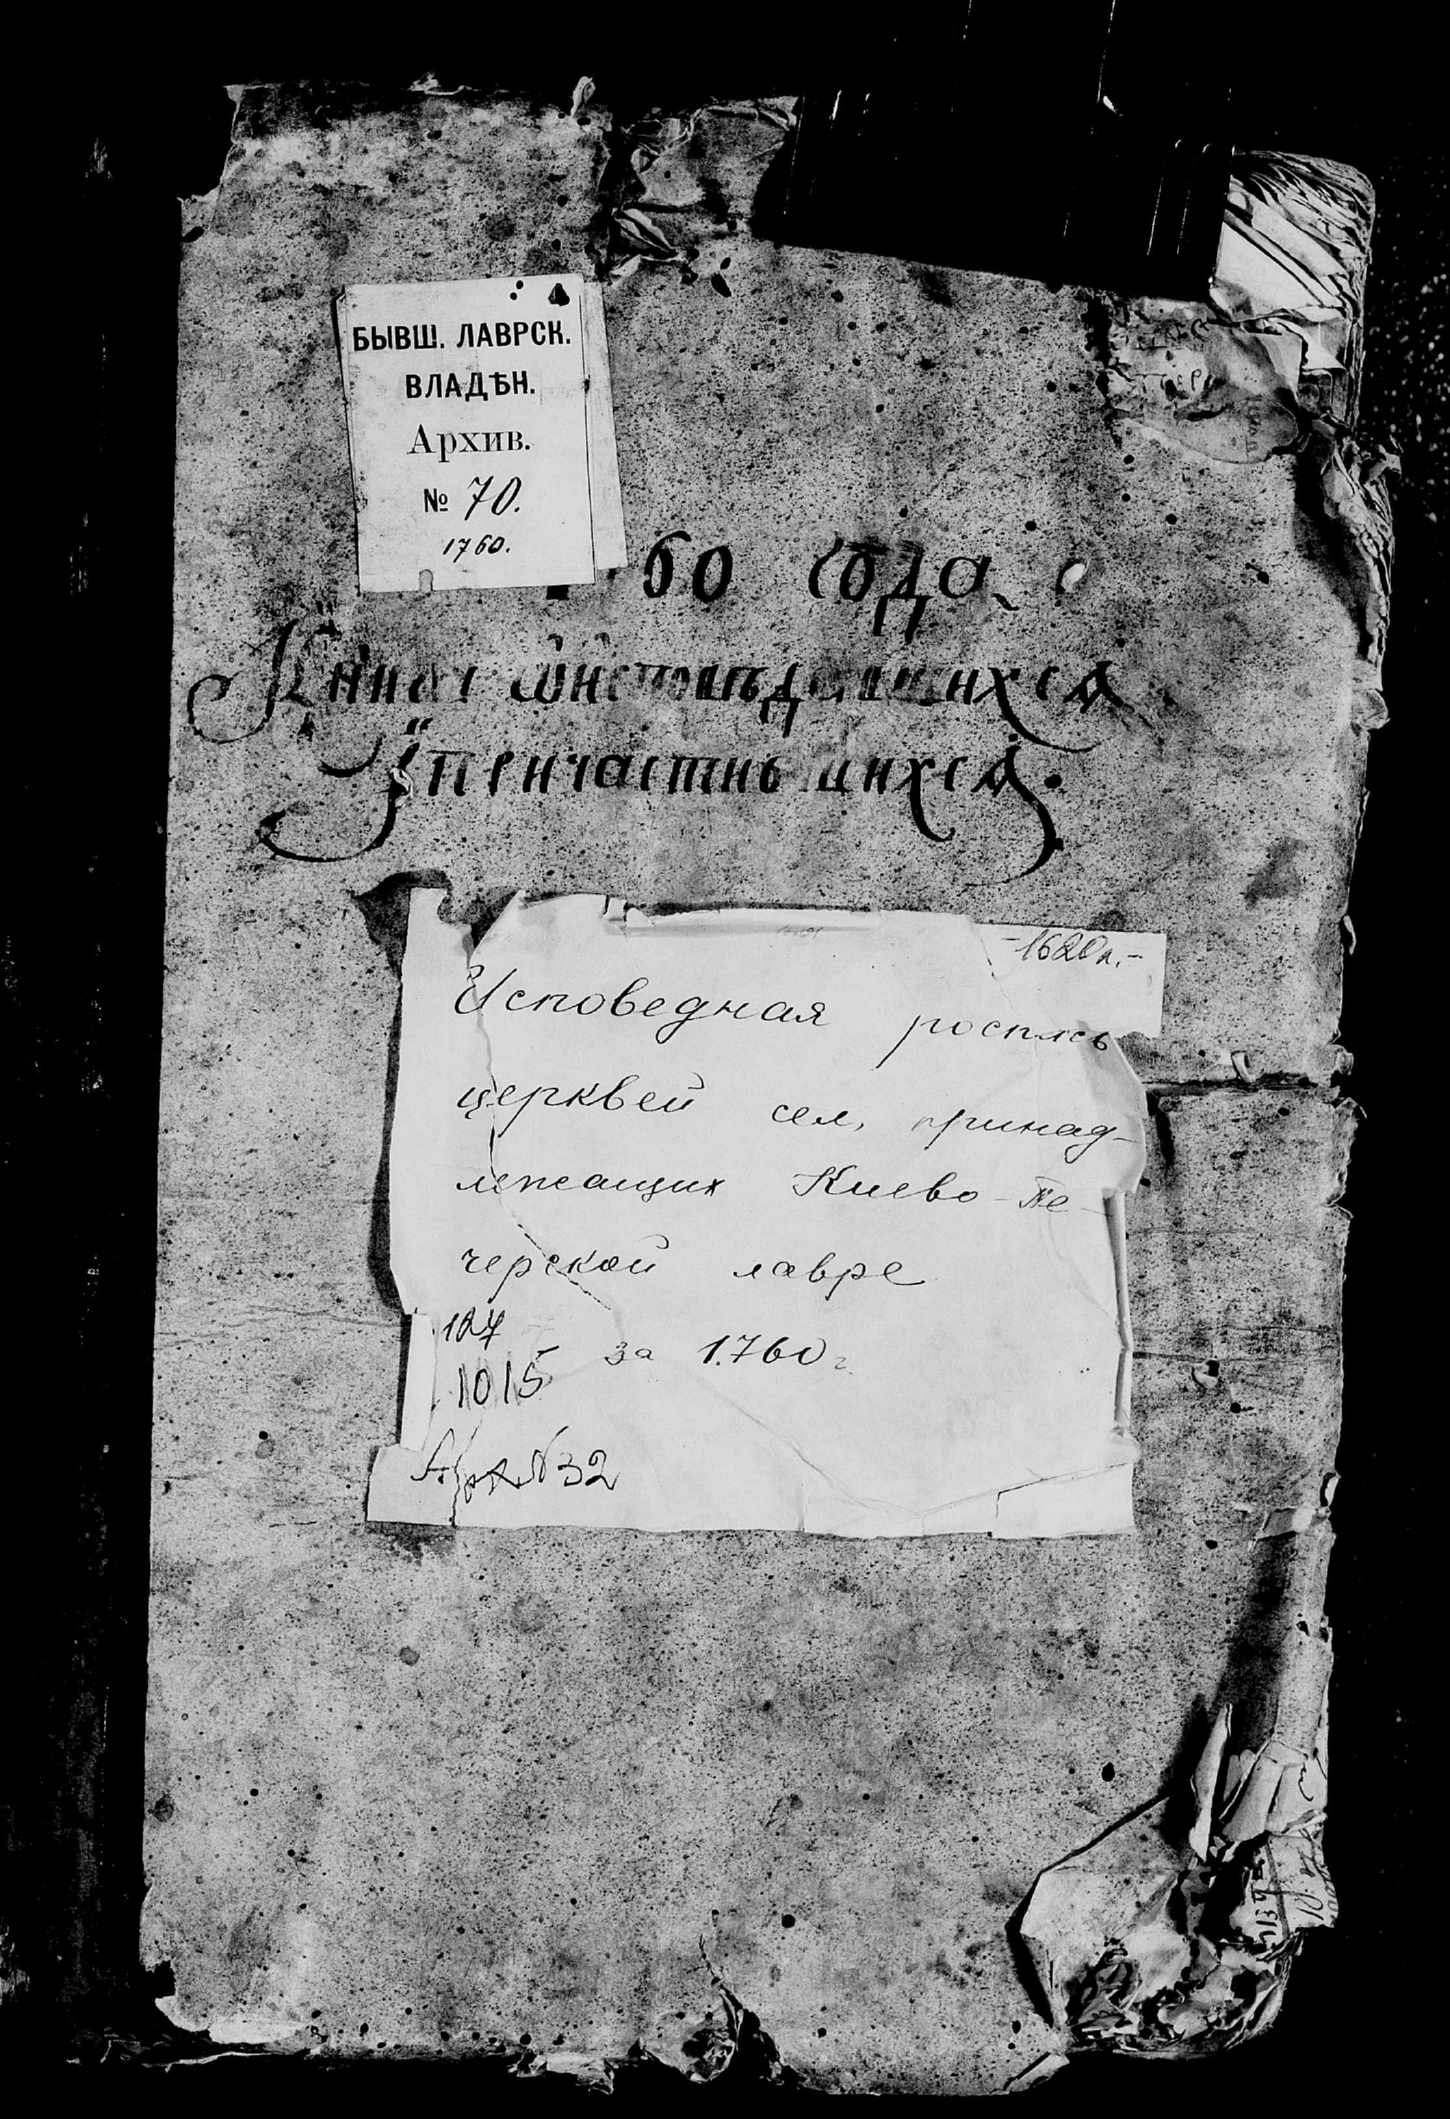 БЫВШ. ЛАВРСК.
ВЛАДѢН.
Архив.
№ 70.
1760.
60 года
Книга ѿисповѣдавшихся
ї причастившихся.
-1620л.-
Исповедная роспись
церквей сел, принад-
лежащих Киево-Пе-
черской лавре
127
за 1760 г.
1015
Арх №32